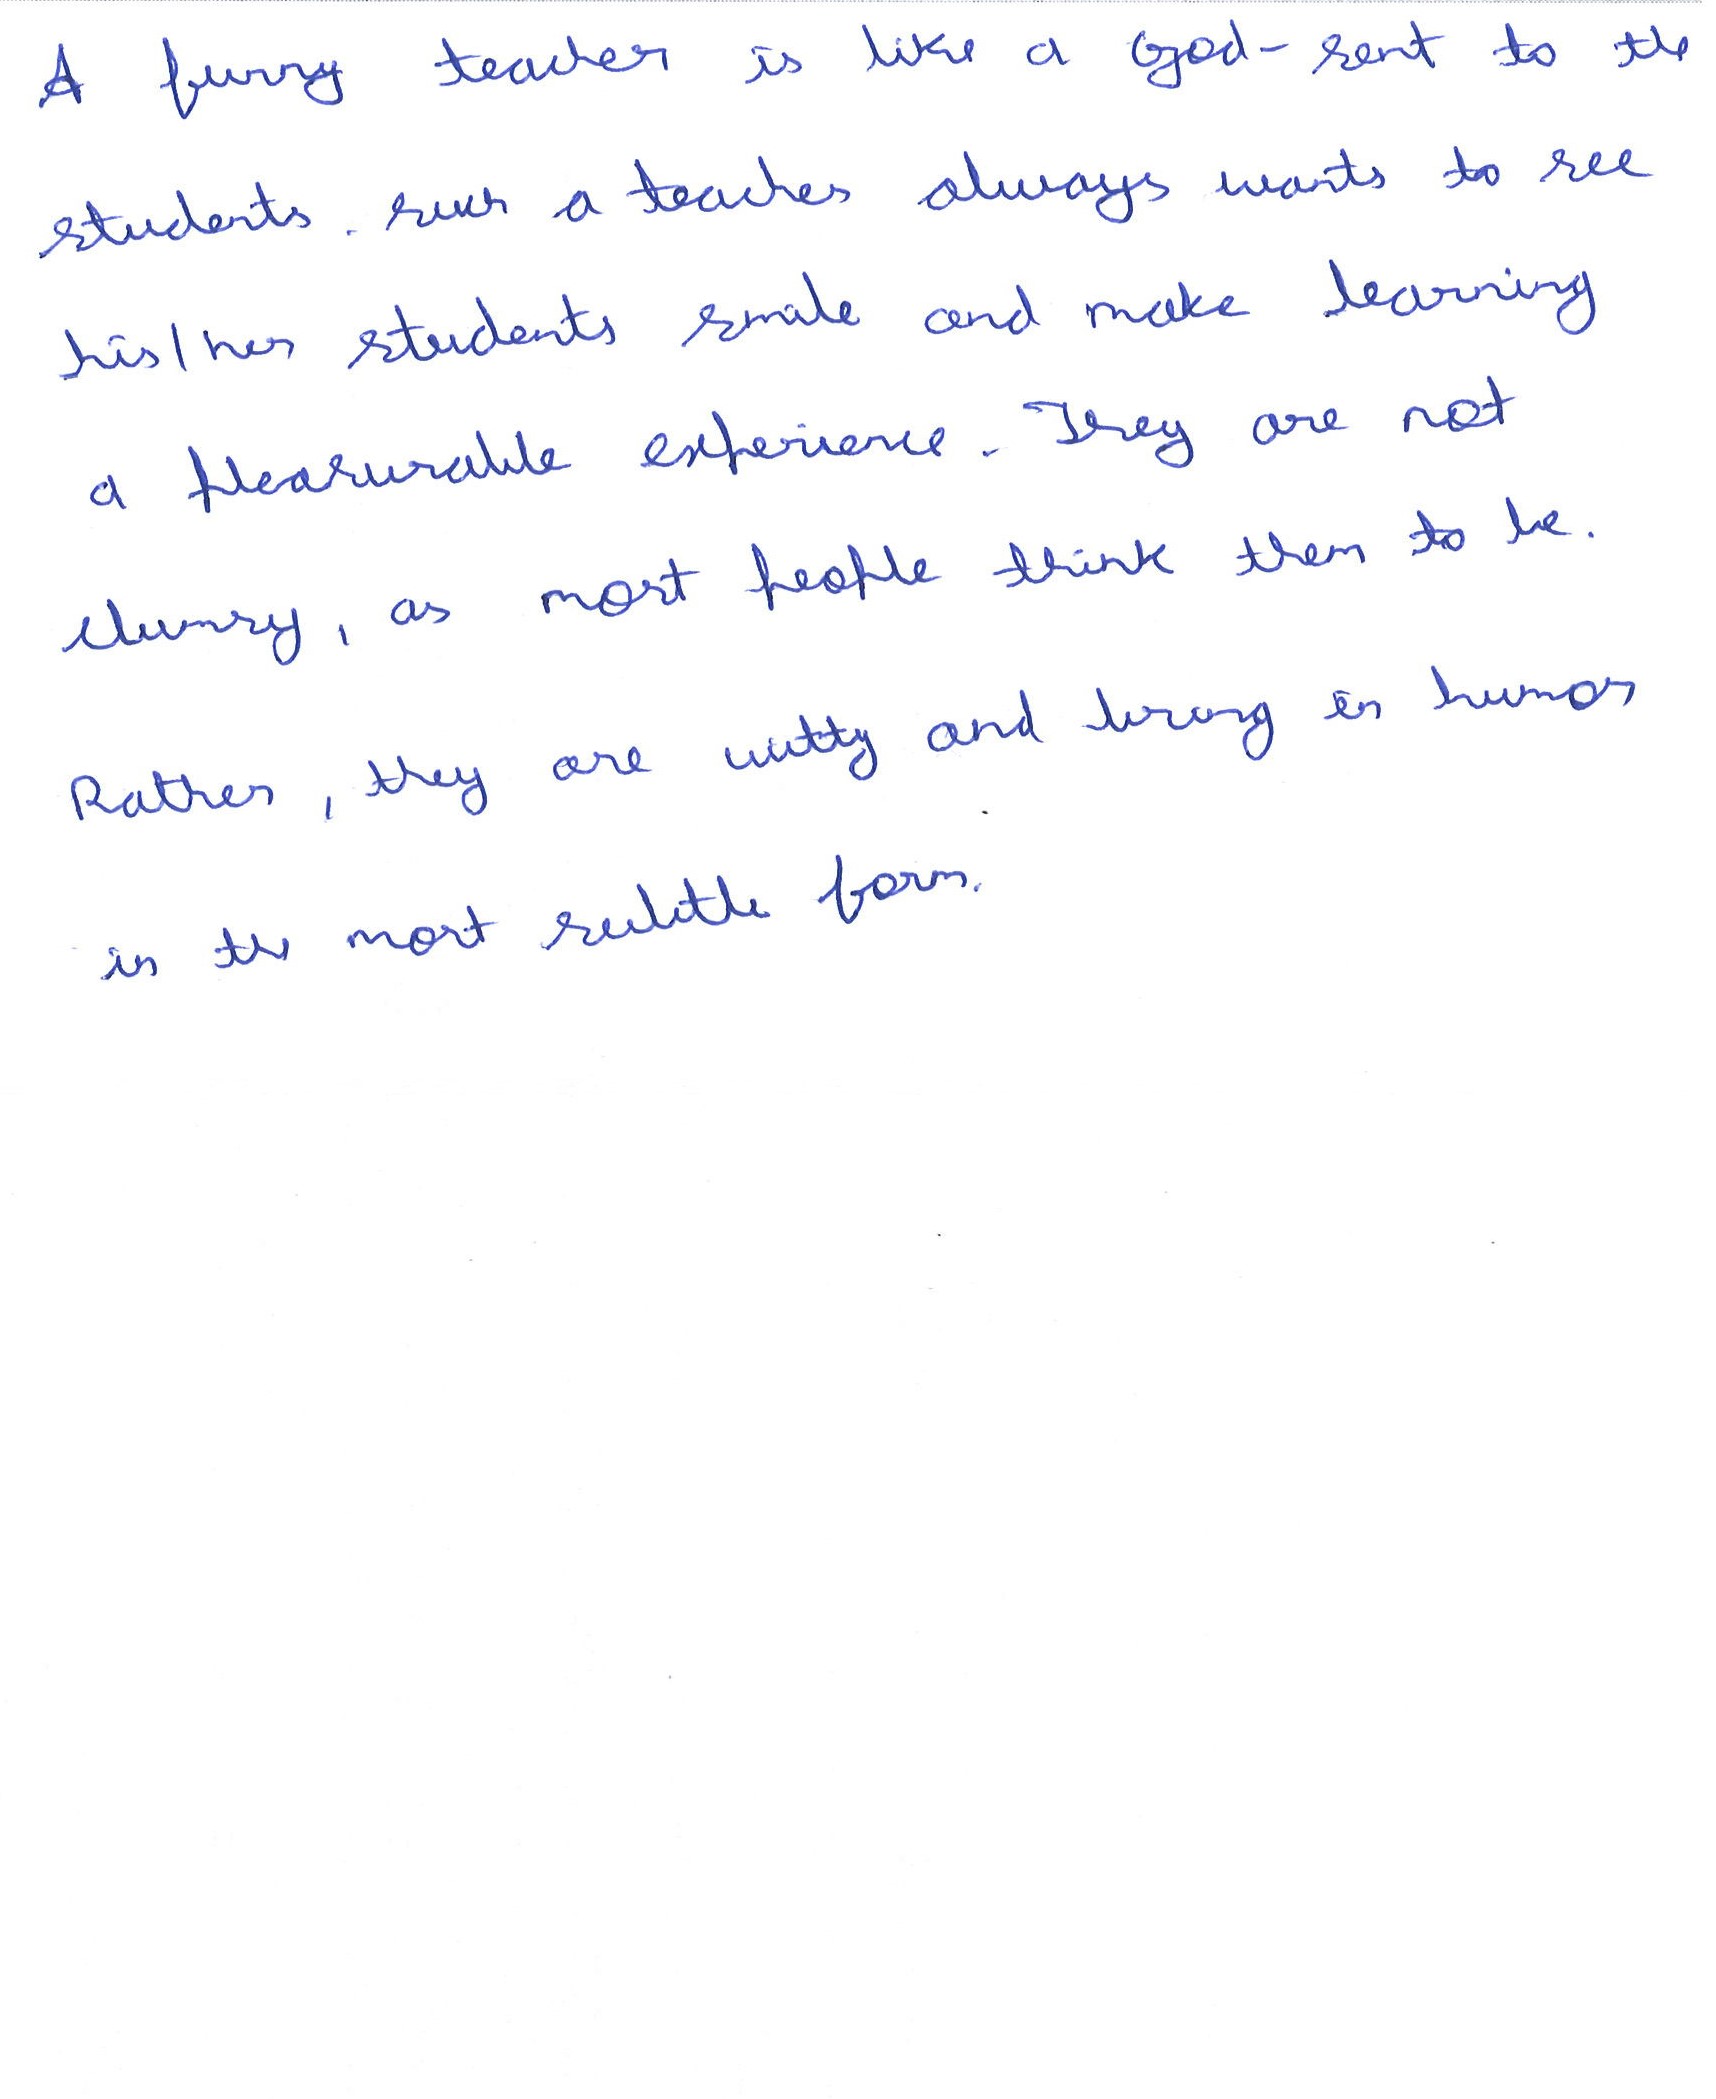 A funny teacher is like a God-sent to the
students. such a teacher always wants to see
his/her students smile and make learning
a pleasurable experience. They are not
clumsy, as most people think them to be.
Rather, they are witty and bring in humor
in the most subtle form.